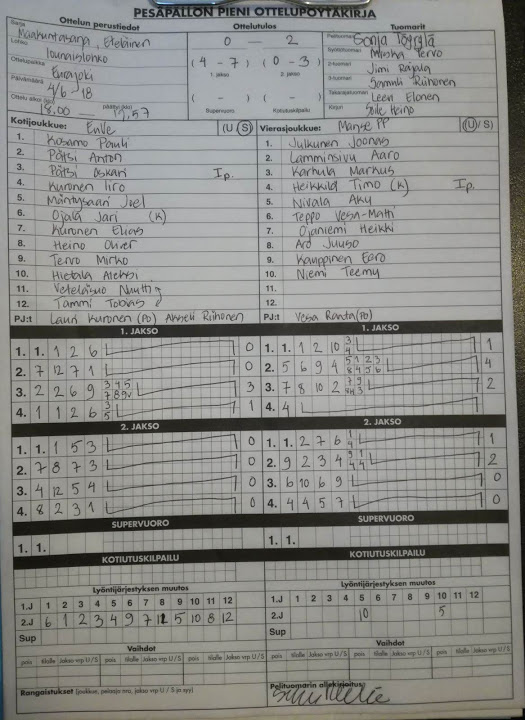 PESÄPALLON PIENI OTTELUPÖYTÄKIRJA
Ottelun perustiedot Ottelutulos Tuomarit
Sarja Maakuntasarja, Eteläinen 0 – 2 Pelituomari Sonja Töyrylä
Lohko Lounaislohko Syöttötuomari Miska Tervo
Ottelupaikka Eurajoki (4 – 7) (0 – 3) 2-tuomari Jimi Rajala
1. jakso 2. jakso 3-tuomari Samuli Riihonen
Päivämäärä 4/6 -18 ( – ) ( – ) Takarajatuomari Leevi Elonen
Ottelu alkoi (klo) 18.00 päättyi (klo) 19.57 Supervuoro Kotiutuskilpailu Kirjuri Heino
Kotijoukkue: EuVe (U/S) Vierasjoukkue: Manse PP (U/S)
1. Kosamo Pauli 1. Julkunen Joonas
2. Pätsi Anton 2. Lamminsivu Aaro
3. Pätsi Oskari Ip. 3. Karhula Markus
4. Kuronen Iiro 4. Heikkilä Timo (K) Ip.
5. Mäntysaari Joel 5. Nivala Aku
6. Ojala Jari (K) 6. Teppo Vesa-Matti
7. Kuronen Elias 7. Ojaniemi Heikki
8. Heino Oliver 8. Aro Juuso
9. Tervo Mirko 9. Kauppinen Eero
10. Hietala Aleksi 10. Niemi Teemu
11. Veteläsuo Nuutti 11.
12. Tammi Tobias 12.
PJ:t Lauri Kuronen (PJ) Akseli Riihonen PJ:t Vesa Ranta (PJ)
1. JAKSO 1. JAKSO
1. 1. 1 2 6 0 1. 1. 1 2 10 3 4 1
2. 7 12 7 1 0 2. 5 6 9 4 5 1 2 3 8 4 5 6 4
3. 2 2 6 9 3 4 5 7 8 9 3 3. 7 8 10 2 7 9 2
4. 1 1 2 6 3 5 1 4. 4
2. JAKSO 2. JAKSO
1. 1. 1 5 3 0 1. 1. 2 7 6 1 4 1
2. 7 8 7 3 0 2. 9 2 3 4 9 1 4 4 2
3. 4 12 5 4 0 3. 6 10 6 9 0
4. 8 2 3 1 0 4. 4 4 5 7 0
SUPERVUORO SUPERVUORO
1. 1. 1. 1.
KOTIUTUSKILPAILU KOTIUTUSKILPAILU
Lyöntijärjestyksen muutos Lyöntijärjestyksen muutos
1.J 1 2 3 4 5 6 7 8 9 10 11 12 1.J 1 2 3 4 5 6 7 8 9 10 11 12
2.J 6 1 2 3 4 9 7 11 5 10 8 12 2.J 10 5
Sup Sup
Vaihdot Vaihdot
pois tilalle Jakso vrp U / S pois tilalle Jakso vrp U / S pois tilalle Jakso vrp U / S pois tilalle Jakso vrp U / S
Rangaistukset (joukkue, pelaaja nro, jakso vrp U / S ja syy) Pelituomarin allekirjoitus: